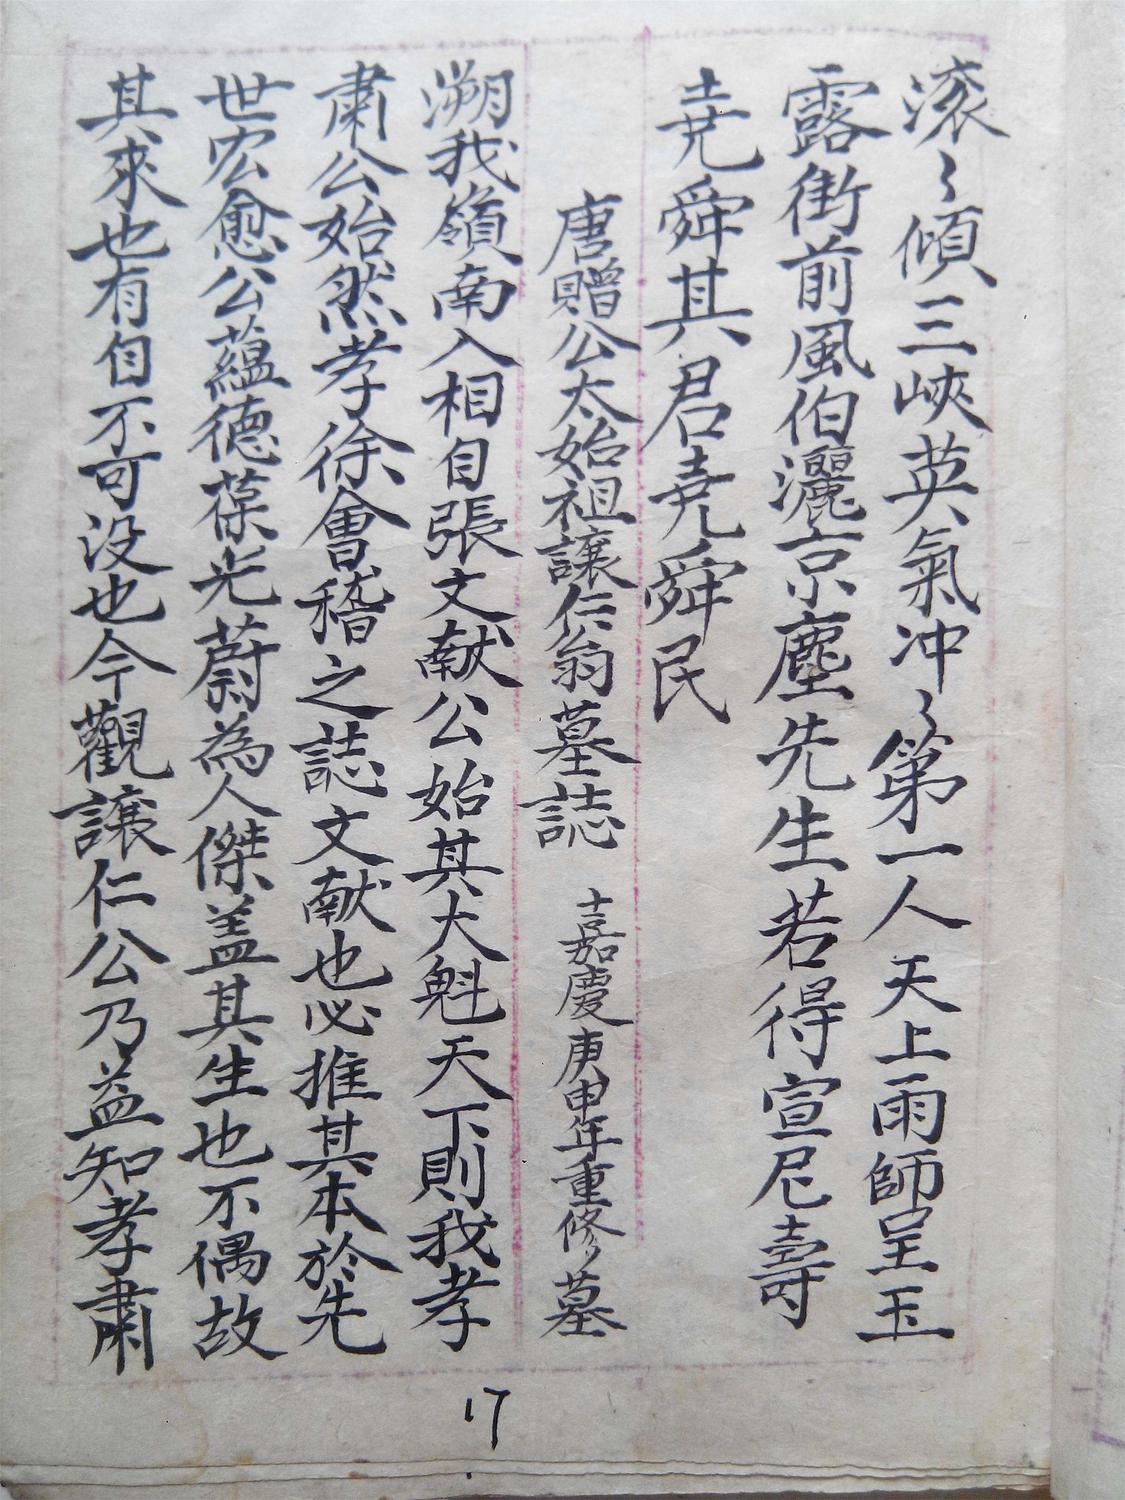 滚〻傾三峽英氣冲〻第一人天上雨師呈玉
露街前風伯灑京塵先生若得宣尼壽
堯舜其君堯舜民
唐贈公太始祖讓仁翁墓誌 嘉慶庚申年重修墓
溯我嶺南入相自張文献公始其大魁天下則我孝
肅公始然孝徐會稽之誌文献也必推其本於先
世宏愈公蘊德葆光蔚為人傑盖其生也不偶故
其來也有自不可没也今觀讓仁公乃益知孝肅
17